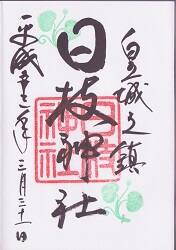 皇城之鎮
日枝神社
平成二十二年三月三十一日